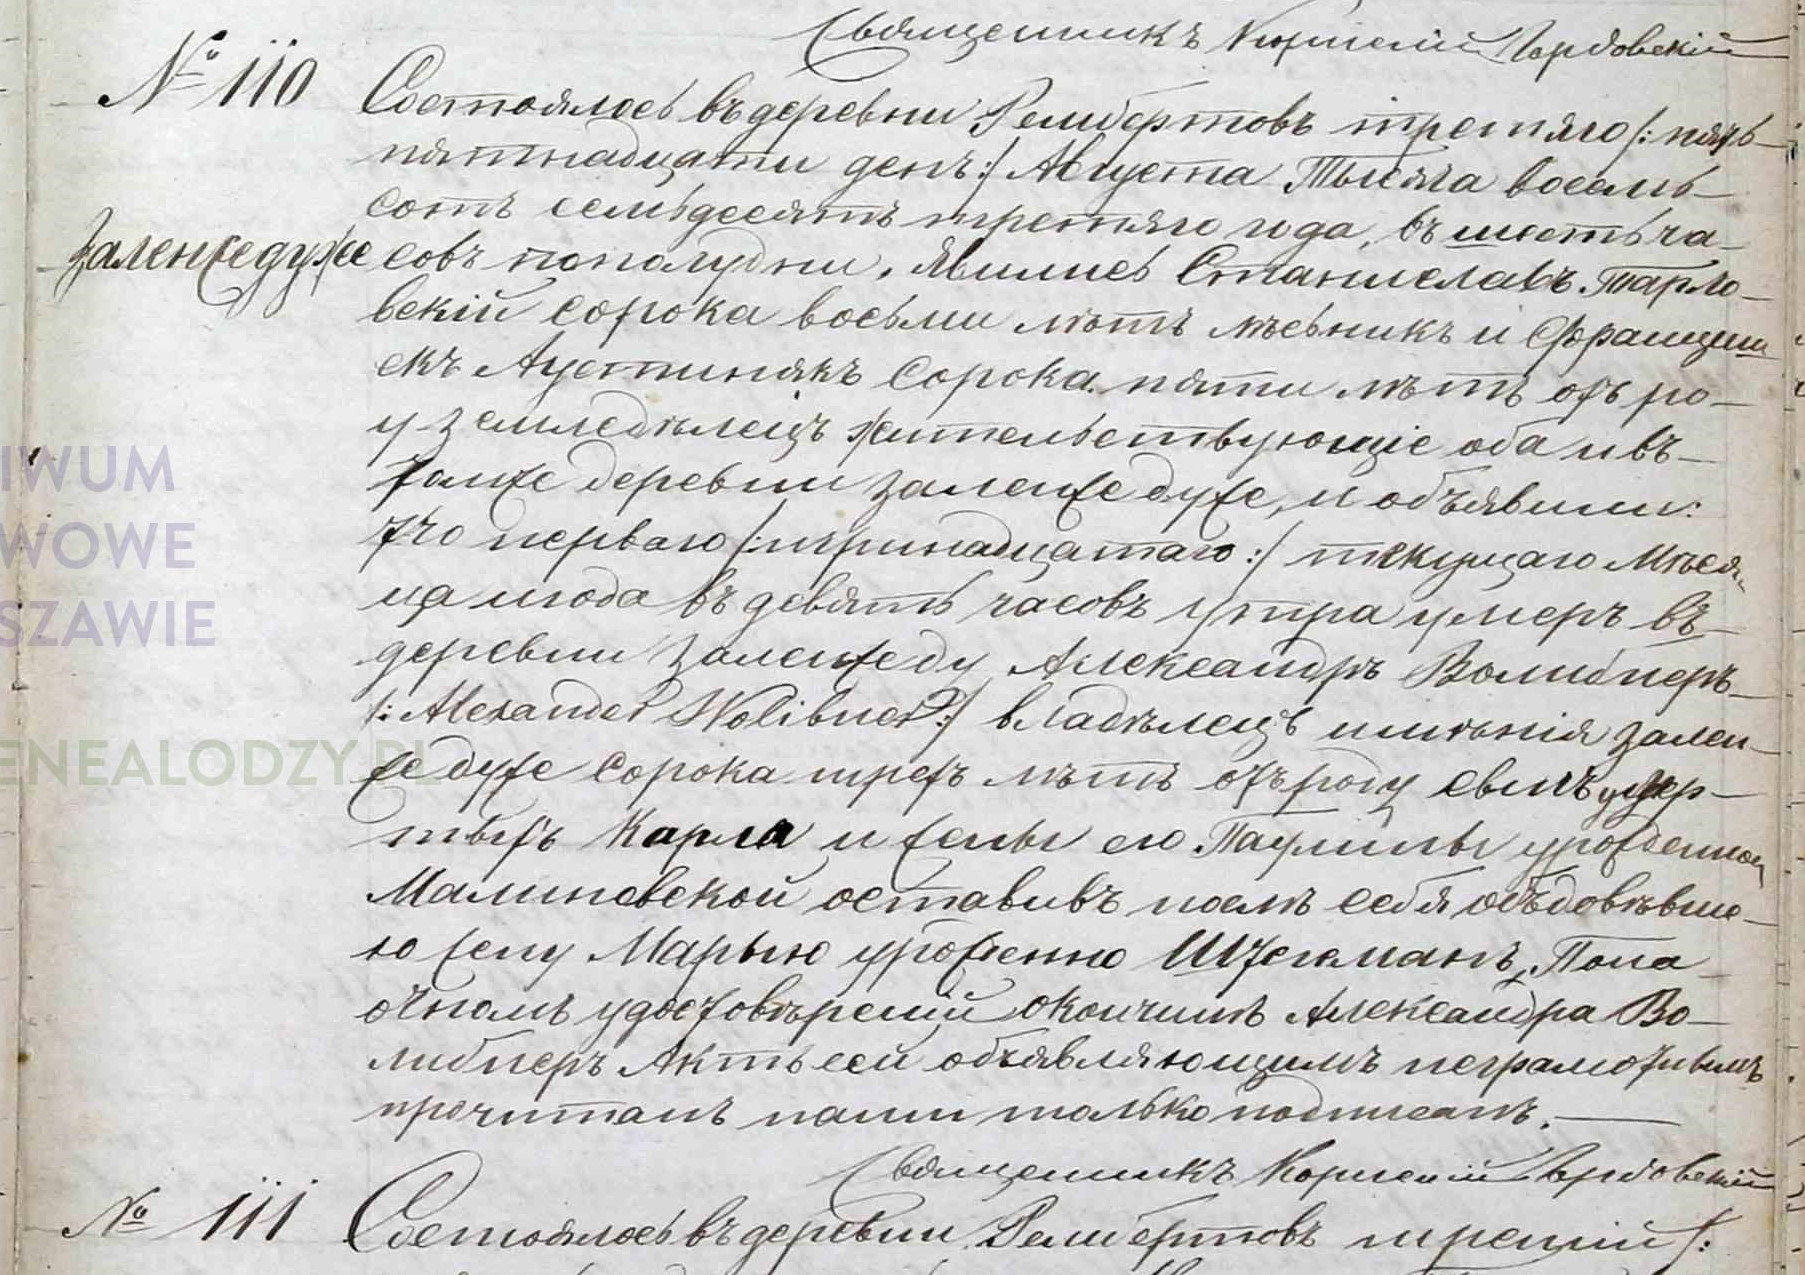 Священникъ Корнелій Гордовскій
№ 110
Состоялось въ деревни Рембертовъ третяго /: пять
пятнадцати день :/ Августа Тысяча восемь
сотъ семьдесятъ третяго года, въ шесть ча-
Заленжедуже
совъ пополудни, явились Станиславъ Тарло-
вскій сорока восьми лѣтъ лѣсникъ и Францише
екъ Аустинякъ сорока пяти лѣтъ отъ ро-
у земледѣлецъ жительствующіе оба и въ
томже деревни Заленже дуже, и объявили:
что перваго /: тринадцатаго :/ текущаго Мѣся-
ца и года въ девять часовъ утра умеръ въ
деревни Заленже ду Александръ Волибнеръ
/: Alexander Wolibner :/ владѣлецъ имѣнія Зален-
же дуже сорока трехъ лѣтъ отъ роду сынъ умер-
тыхъ Карла и жены его Паулины урожденной
Малиновской оставивъ послѣ себя объдовѣвше-
ю жену Марыю урожденно Штегманъ, Пона
очномъ удостовѣреніи окончинѣ Александра Во-
либнеръ Актъ сей объявляющимъ неграмотнымъ
прочитанъ нами только подписанъ.
Священникъ Корнелій Гордовскій
№ 111
Состоялось въ деревни Рембертовъ третій /: